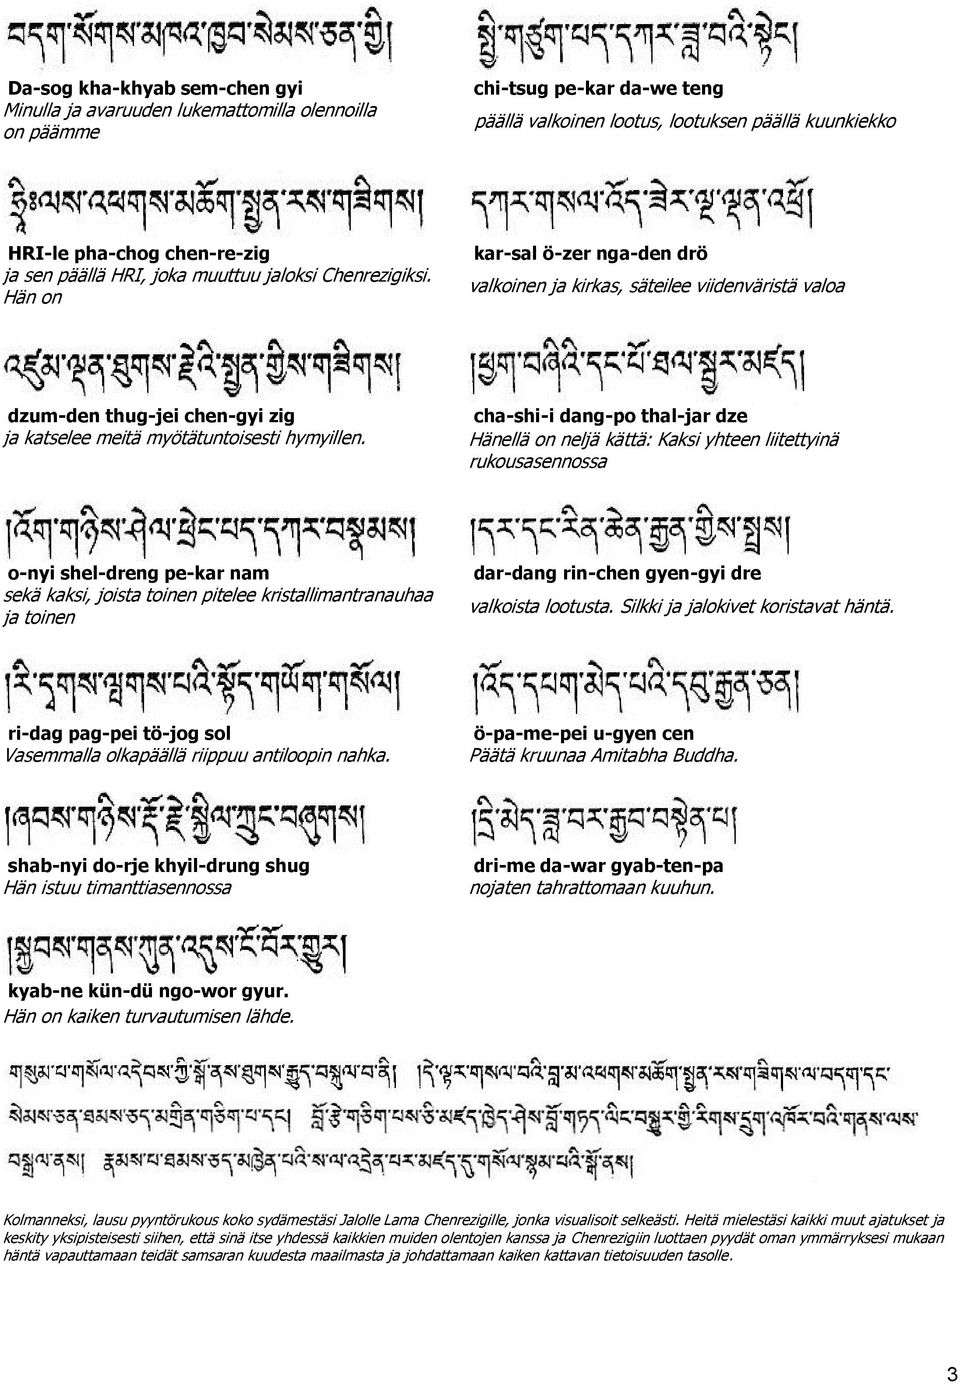 བདག་སོགས་མཁའ་ཁྱབ་སེམས་ཅན་གྱི།
Da-sog kha-khyab sem-chen gyi
Minulla ja avaruuden lukemattomilla olennoilla
on päämme
སྤྱི་གཙུག་པད་དཀར་ཟླ་བའི་སྟེང།
chi-tsug pe-kar da-we teng
päällä valkoinen lootus, lootuksen päällä kuunkiekko
ཧྲཱིཿལས་འཕགས་མཆོག་སྤྱན་རས་གཟིགས།
HRI-le pha-chog chen-re-zig
ja sen päällä HRI, joka muuttuu jaloksi Chenrezigiksi.
Hän on
དཀར་གསལ་འོད་ཟེར་ལྔ་ལྡན་འཕྲོ།
kar-sal ö-zer nga-den drö
valkoinen ja kirkas, säteilee viidenväristä valoa
འཛུམ་ལྡན་ཐུགས་རྗེའི་སྤྱན་གྱིས་གཟིགས།
dzum-den thug-jei chen-gyi zig
ja katselee meitä myötätuntoisesti hymyillen.
།ཕྱག་བཞིའི་དང་པོ་ཐལ་སྦྱར་མཛད།
cha-shi-i dang-po thal-jar dze
Hänellä on neljä kättä: Kaksi yhteen liitettyinä
rukousasennossa
།འོག་གཉིས་ཤེལ་ཕྲེང་པད་དཀར་བསྣམས།
o-nyi shel-dreng pe-kar nam
sekä kaksi, joista toinen pitelee kristallimantranauhaa
ja toinen
།དར་དང་རིན་ཆེན་རྒྱན་གྱིས་སྤྲས།
dar-dang rin-chen gyen-gyi dre
valkoista lootusta. Silkki ja jalokivet koristavat häntä.
།རི་དྭགས་ལྤགས་པའི་སྟོད་གཡོག་གསོལ།
ri-dag pag-pei tö-jog sol
Vasemmalla olkapäällä riippuu antiloopin nahka.
།འོད་དཔག་མེད་པའི་དབུ་རྒྱན་ཅན།
ö-pa-me-pei u-gyen cen
Päätä kruunaa Amitabha Buddha.
།ཞབས་གཉིས་རྡོ་རྗེ་སྐྱིལ་ཀྲུང་བཞུགས།
shab-nyi do-rje khyil-drung shug
Hän istuu timanttiasennossa
།དྲི་མེད་ཟླ་བར་རྒྱབ་བསྟེན་པ།
dri-me da-war gyab-ten-pa
nojaten tahrattomaan kuuhun.
།སྐྱབས་གནས་ཀུན་འདུས་ངོ་བོར་གྱུར།
kyab-ne kün-dü ngo-wor gyur.
Hän on kaiken turvautumisen lähde.
གསུམ་པ་གསོལ་འདེབས་ཀྱི་སྒོ་ནས་ཐུགས་རྒྱུད་བསྐུལ་བ་ནི། །དེ་ལྟར་གསལ་བའི་བླ་མ་འཕགས་མཆོག་སྤྱན་རས་གཟིགས་ལ་བདག་དང་
སེམས་ཅན་ཐམས་ཅད་མགྲིན་གཅིག་པ་དང། བློ་རྩེ་གཅིག་པས་ཅི་མཛད་ཁྱེད་ཤེས་བློ་གཏད་ལིང་བསྐྱུར་གྱི་རིགས་དྲུག་འཁོར་བའི་གནས་ལས་
བསྒྲལ་ནས། རྣམས་པ་ཐམས་ཅད་མཁྱེན་པའི་ས་ལ་འདྲེན་པར་མཛད་དུ་གསོལ་སྙམ་པའི་སྒོ་ནས།
Kolmanneksi, lausu pyyntörukous koko sydämestäsi Jalolle Lama Chenrezigille, jonka visualisoit selkeästi. Heitä mielestäsi kaikki muut ajatukset ja
keskity yksipisteisesti siihen, että sinä itse yhdessä kaikkien muiden olentojen kanssa ja Chenrezigiin luottaen pyydät oman ymmärryksesi mukaan
häntä vapauttamaan teidät samsaran kuudesta maailmasta ja johdattamaan kaiken kattavan tietoisuuden tasolle.
3